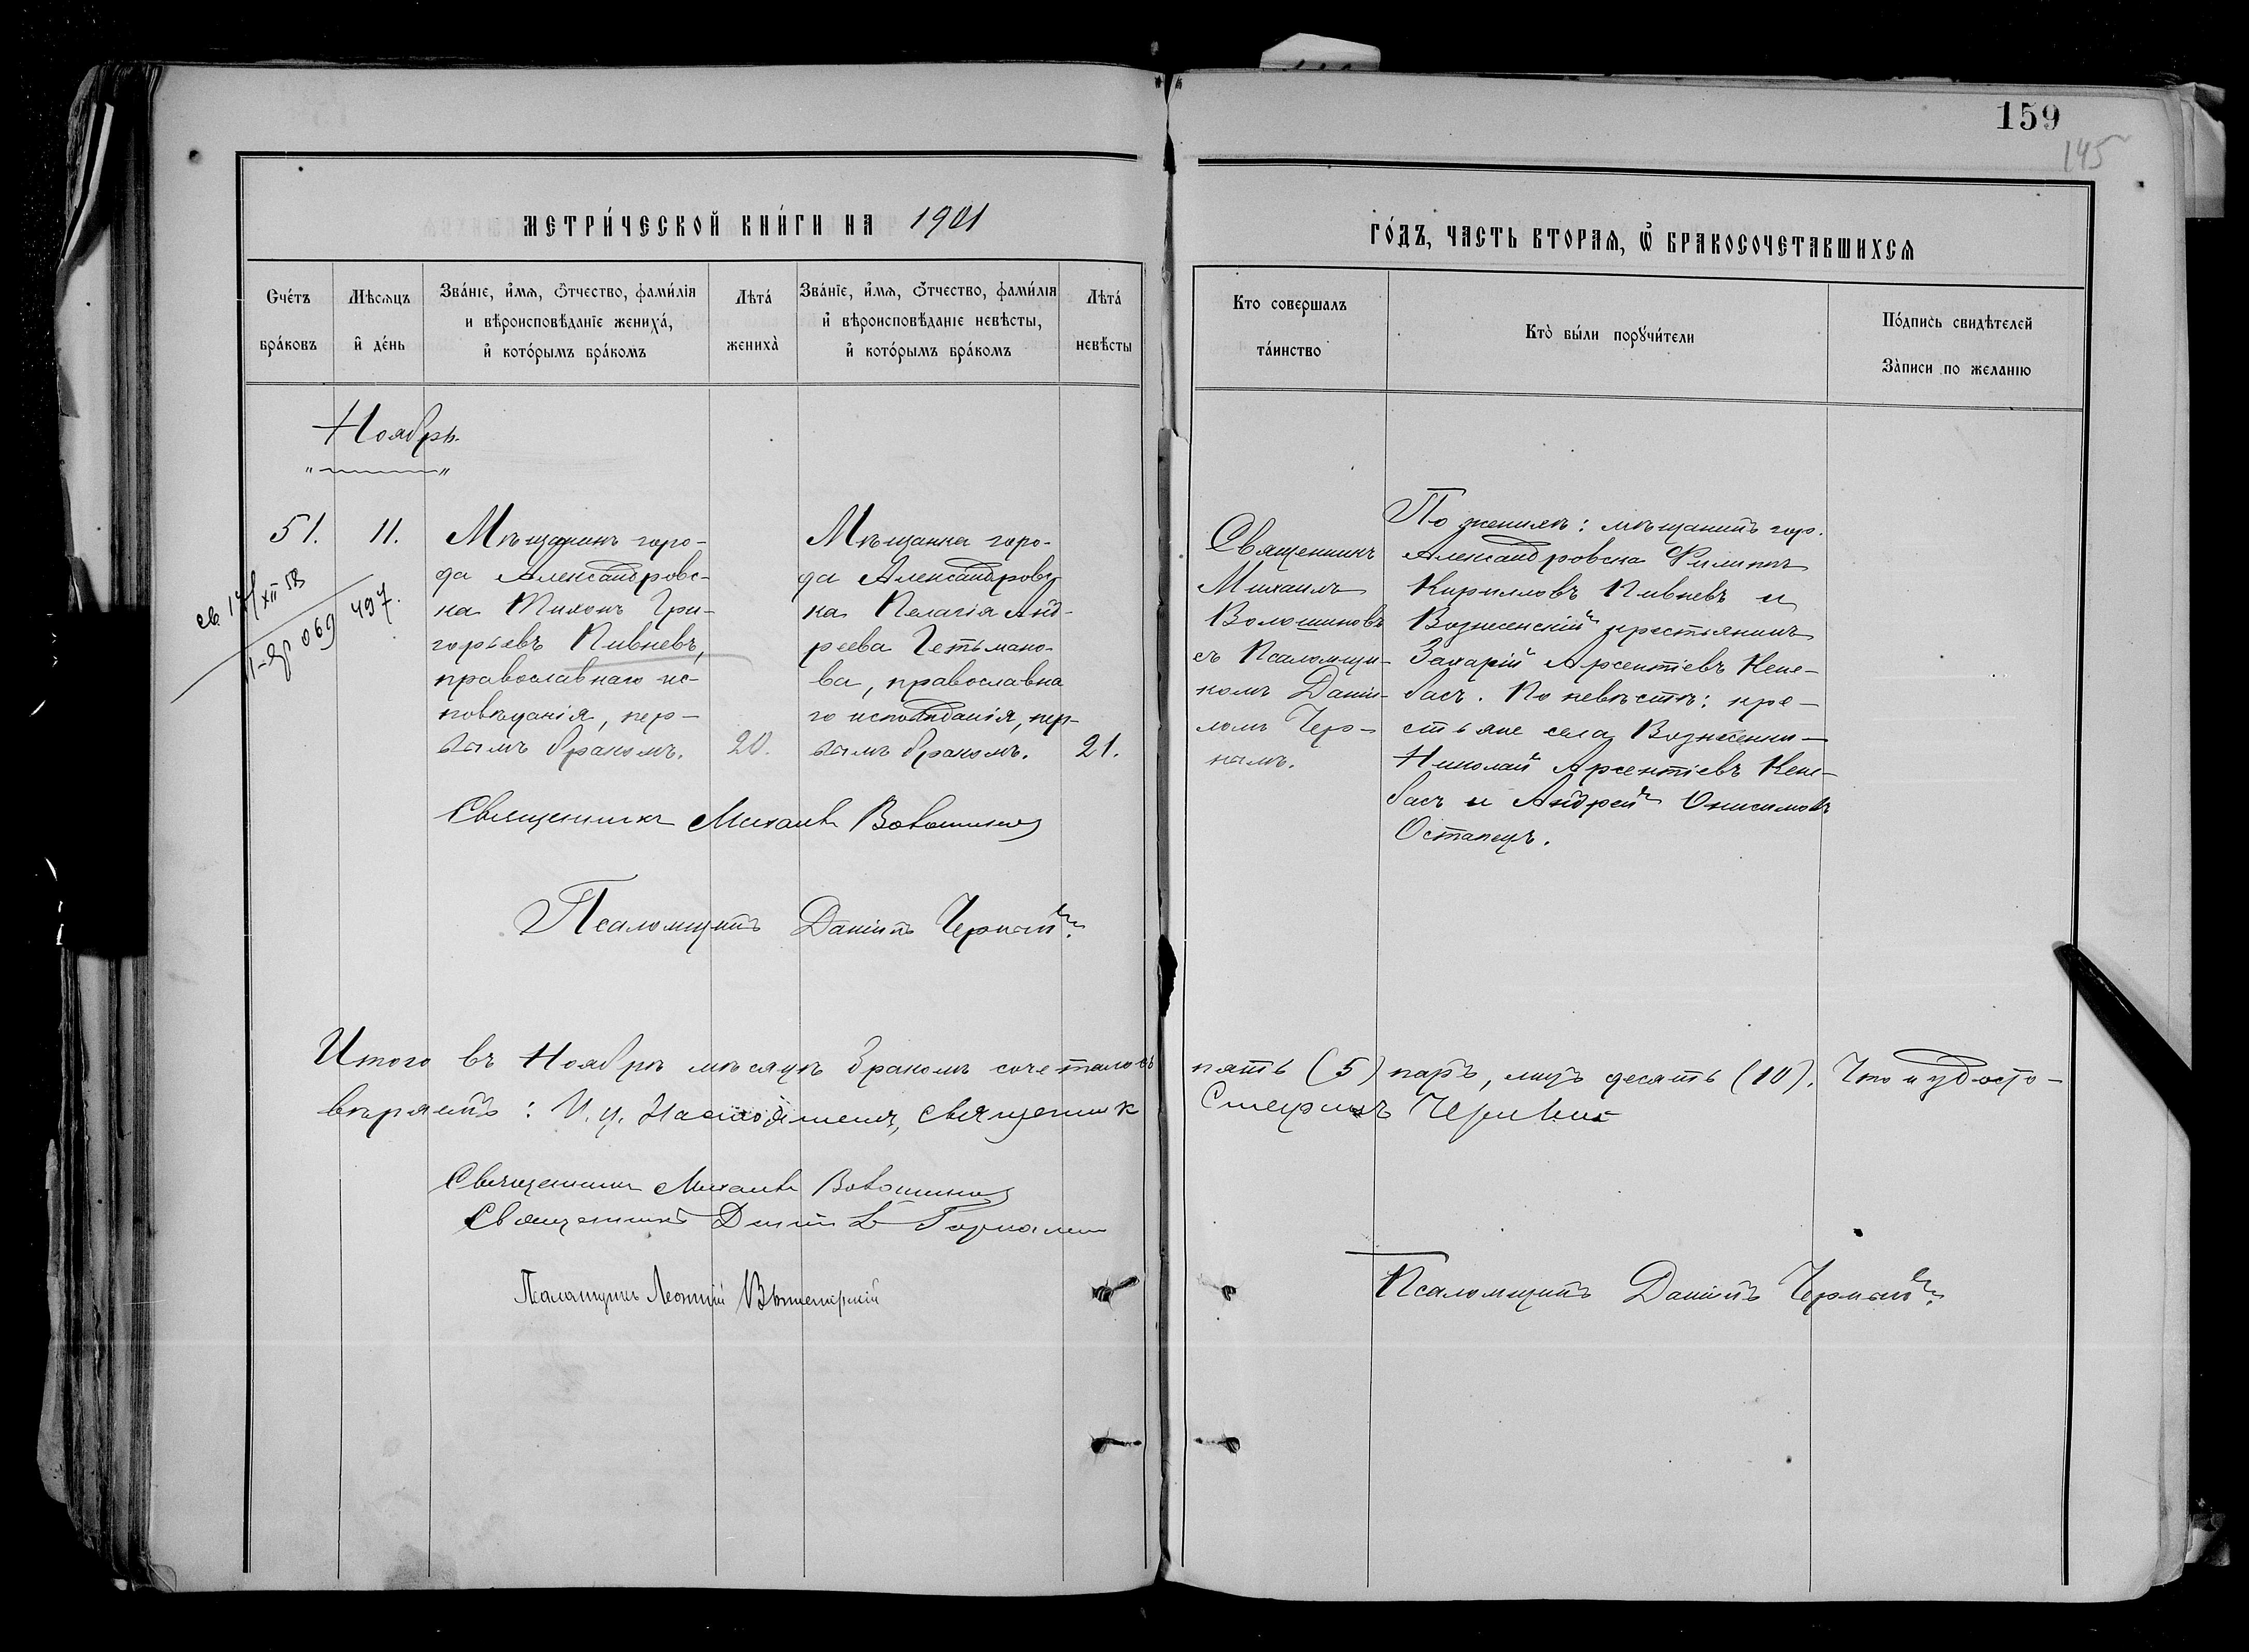 159
145
МЕТРИ́ЧЕСКОЙ КНИ́ГИ НА 1901
ГО́ДЪ, ЧАСТЬ ВТОРАѦ, Ѡ҆ БРАКОСОЧЕТАВШИХСѦ
Счетъ бра́ковъ
Мѣсѧцъ и҆ де́нь
Зва́нїе, и҆́мѧ, ѻ҆́тчество, фами́лїѧ
и вѣроисповѣ́данїе жениха̀,
и҆ кото́рымъ бра́комъ
Лѣта̀ жениха̀
Зва́нїе, и҆́мѧ, ѻ҆́тчество, фами́лїѧ
и҆ вѣроисповѣ́данїе невѣ́сты,
и҆ кото́рымъ бра́комъ
Лѣта̀ невѣ́сты
Кто совершалъ та́инство
Кто̀ бы́ли порꙋчи́тели
По́дпись свидѣ́телей
За̀писи по желанїю
Ноябрь.
51.
11.
497.
Мѣщанинъ горо-
да Александровс-
ка Тихонъ Гри-
горьевъ Пивневъ,
православнаго ис-
повѣданія, пер-
вымъ бракомъ.
20.
Мѣщанка горо-
да Александровс
ка Пелагія Анд-
реева Гетьмано-
ва, православна
го исповѣданія, пер-
вымъ бракомъ.
21.
Священникъ
Михаилъ
Волошиновъ
съ Псаломщи-
комъ Даніи-
ломъ Чер-
нымъ.
По женихѣ: мѣщанинъ гор.
Александровска Филиппъ
Кирилловъ Пивневъ и
Вознесенскій крестьянинъ
Захарій Арсентіевъ Кене-
басъ. По невѣстѣ: кре-
стьяне села Вознесенки
Николай Арсентіевъ Кене-
басъ и Андрей Онисимовъ
Остапецъ.
Священникъ Михаилъ Волошиновъ
Псаломщикъ Даніилъ Черный.
Итого въ Ноябрѣ мѣсяцѣ бракомъ сочеталось пять (5) паръ, лицъ десять (10). Что и удосто-
вѣряетъ: И. д. Настоятеля, священник
Священникъ Михаилъ Волошиновъ
Священникъ
Псаломщикъ Леонтій
Псаломщикъ Даніилъ Черный.